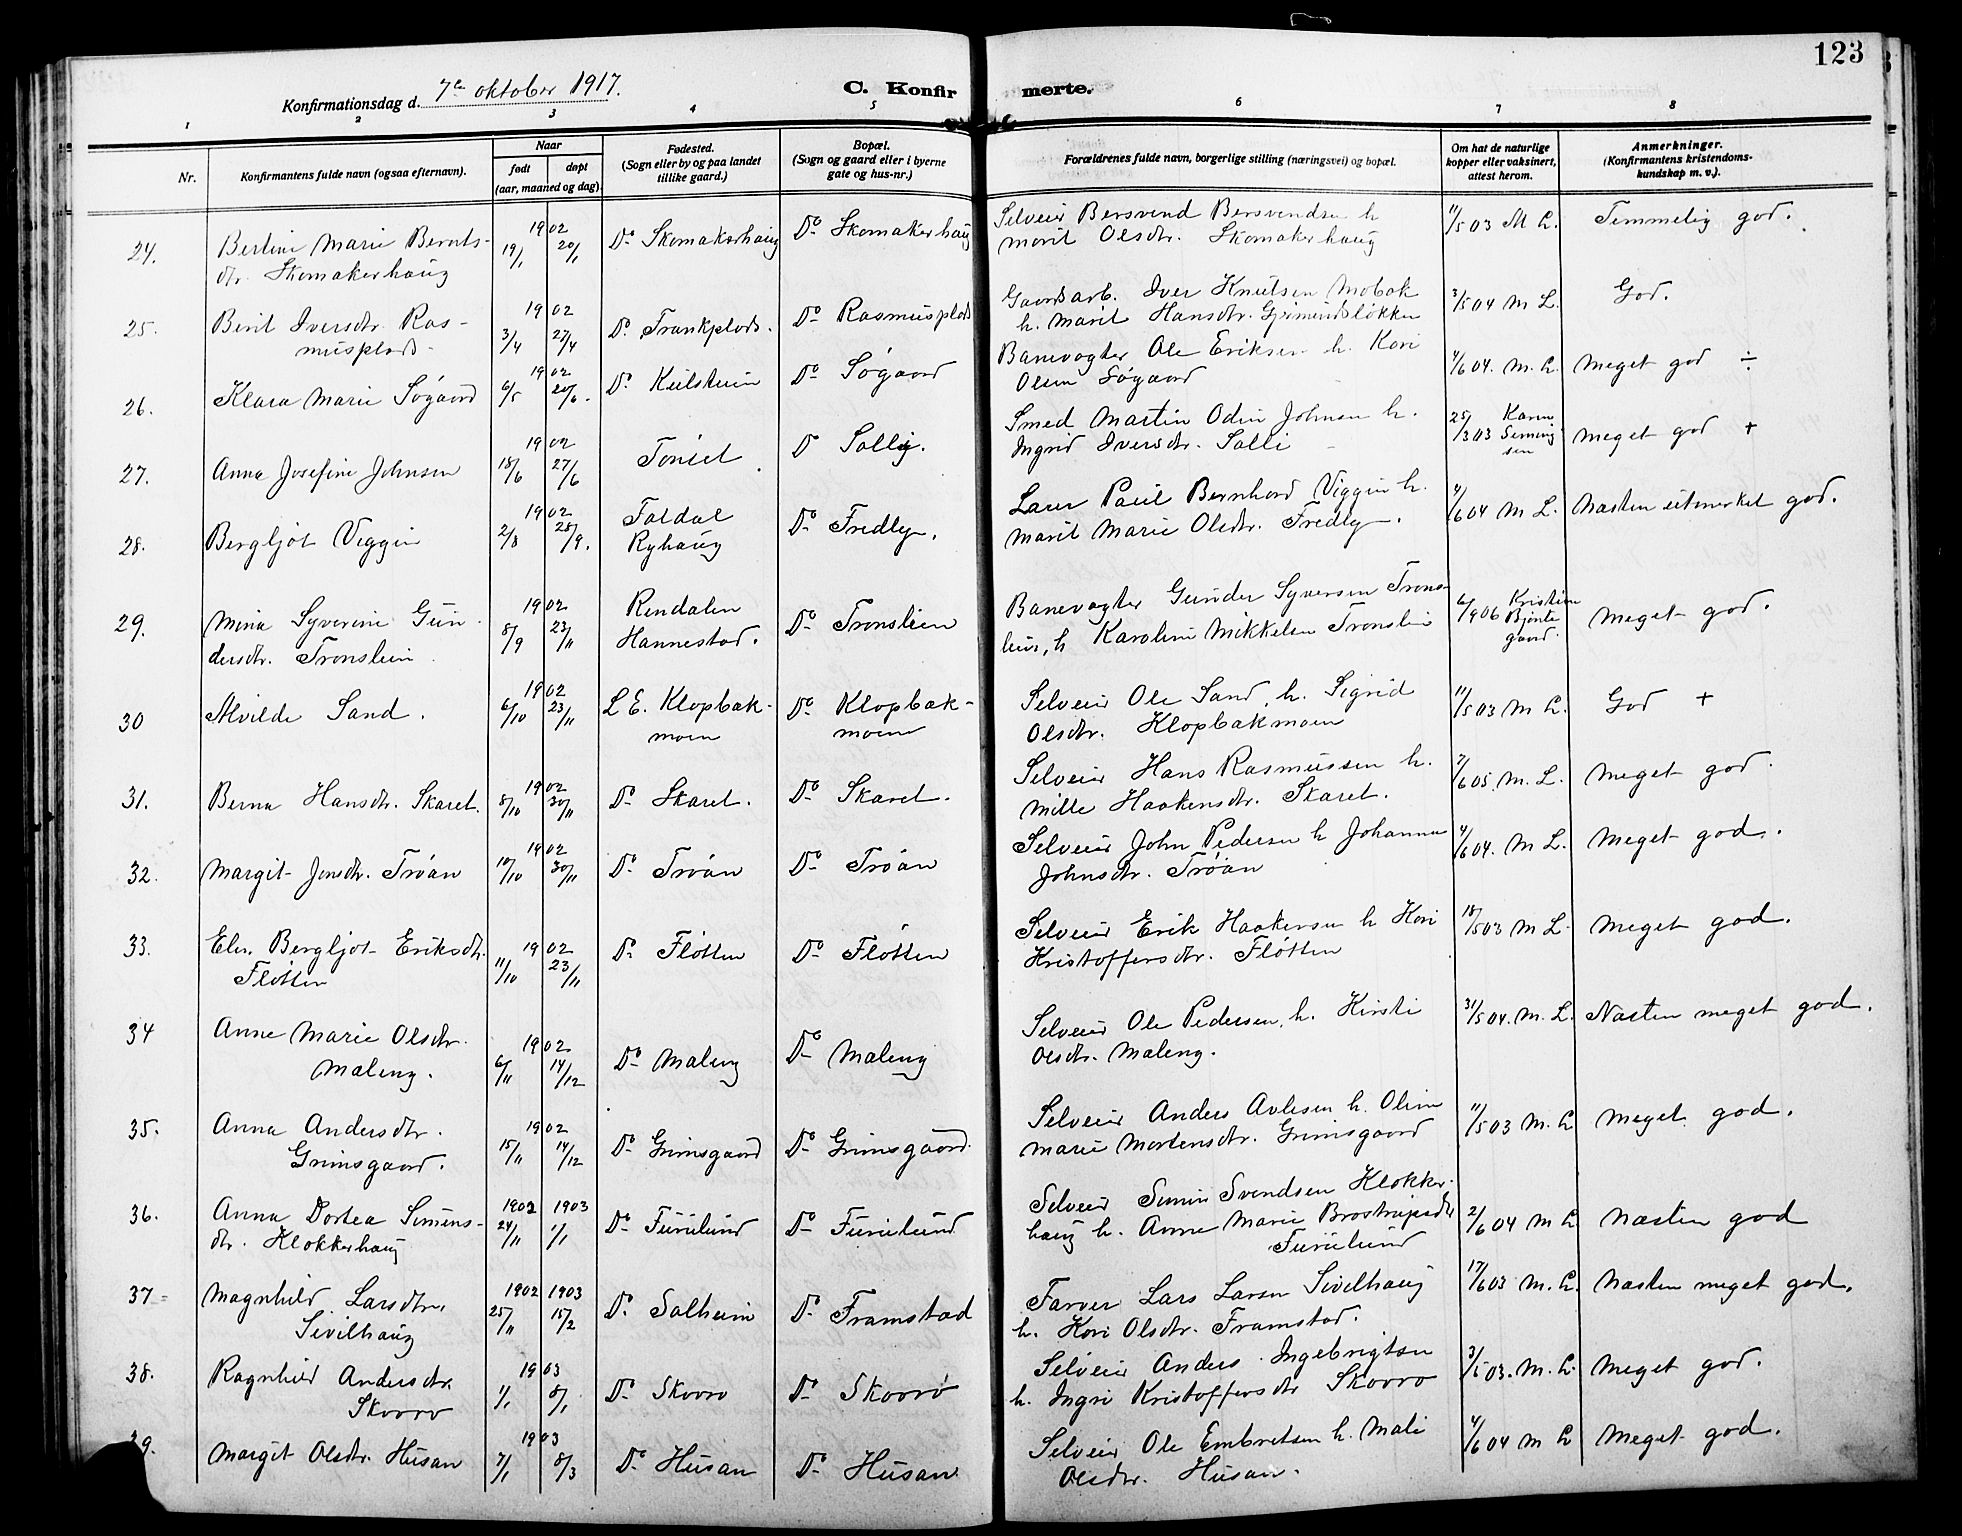 123
Konfirmationsdag d. 7de oktober 1917.
C. Konfirmerte.
1 2 3 4 5 6 7 8
Nr.
Konfirmantens fulde navn (ogsaa efternavn).
Naar
født døpt
(aar, maaned og dag)
Fødested.
(Sogn eller by og paa landet
tillike gaard.)
Bopæl.
(Sogn og gaard eller i byerne
gate og hus-nr.)
Forældrenes fulde navn, borgerlige stilling (næringsvei) og bopæl.
Om hat de naturlige
kopper eller vaksinert,
attest herom.
Anmerkninger.
(Konfirmantens kristendoms-
kundskap m. v.).
24. Bertine Marie Bernts- 1902 19/1 20/1 Do Skomakerhaug Do Skomakerhaug Selveier Bersvend Bersvendsen h 11/5 03 M L. Temmelig god.
dtr. Skomakerhaug Marit Olsdtr. Skomakerhaug
25. Berit Iversdtr. Ras- 1902 3/4 27/4 Do Frankplads. Do Rasmusplads Gaardsarb. Iver Knutsen Mobak 3/5 04 M L. God.
musplads h. Marit Hansdtr. Gjermundsløkken
26. Klara Marie Søgaard 1902 6/5 20/6. Do Do Søgaard Banevogter Ole Eriksen h. Kari 4/6 04. M. L. Meget god ÷
Olsen Søgaard
27. Anna Josefine Johnsen 1902 18/6 27/6 Tønset Do Smed Martin Odin Johnsen h. 25/3 03 Karen Meget god +
Ingrid Iversdtr. Salli
28. Bergljot Viggin 1902 2/8 28/9. Foldal Do Fredly. Lærer Paul Bernhard Viggin h. 4/6 04 M L. Næsten utmerket god.
Ryhaug Marit Marie Olsdtr. Fredly.
29. Mina Syverine Gun- 1902 8/9 23/11 Rendalen Do Tronslien Banevogter Gunder Syversen Trons- 6/9 06 Kristian Meget god.
dersdtr. Tronslien Hannestad. lien, h Karoline Mikkelsen Tronslien gaard.
30 Alvilde Sand. 1902 6/10 23/11 L E. Klopbak- Do Klopbak- Selveier Ole Sand, h. Sigrid 11/5 03 M L. God +
moen moen Olsdtr. Klopbakmoen
31. Berna Hansdtr. Skaret. 1902 8/10 30/11 Do Skaret. Do Skaret. Selveier Hans Rasmussen h. 2/6 05. M. L. Meget god.
Mille Haakensdtr. Skaret.
32. Margit Jonsdtr. Trøan 1902 10/10 30/11 Do Trøan Do Trøan Selveier John Pedersen h Johanna 4/6 04. M L. Meget god.
Johnsdtr. Trøan
33. Elen Bergljot Eriksdtr. 1902 11/10 23/11 Do Fløtten Do Fløtten Selveier Erik Haakensen h Kari 18/5 03 M L. Meget god.
Fløtten Kristoffersdtr. Fløtten
34 Anne Marie Olsdtr. 1902 6/11 14/12 Do Maleng Do Maleng Selveier Ole Pedersen, h. Kirsti 31/5 04. M. L. Næsten meget god.
Maleng. Olsdtr. Maleng.
35. Anna Andersdtr. 1902 15/11 14/12 Do Grimsgaard Do Grimsgaard Selveier Anders Avlesen h. Oline 11/5 03 M. L Meget god.
Grimsgaard. Marie Mortensdtr. Grimsgaard
36. Anna Dortea Simens- 1902 24/11 1903 1/1 Do Furulund Do Furulund Selveier Simen Svendsen Klokker- 2/6 04 M L Næsten god
dtr. Klokkerhaug haug h. Anne Marie Brostrupsdtr
Furulund
37 Magnhild Larsdtr. 1902 25/11 1903 15/2 Do Solheim Do Framstad Farver Lars Larsen Sivilhaug 17/6 03 M. L. Næsten meget god.
Sivilhaug h. Kari Olsdtr. Framstad.
38. Ragnhild Andersdtr. 1903 1/1 8/1 Do Skovro Do Skovro Selveier Anders Ingebrigtsen 3/5 03. M. L. Meget god.
Skovro h. Ingri Kristoffersdtr Skovro
39. Margit Olsdtr. Husan 1903 7/1 8/3 Do Husan Do Husan Selveier Ole Embretsen h. Mali 4/6 04 M L Meget god.
Olsdtr. Husan.